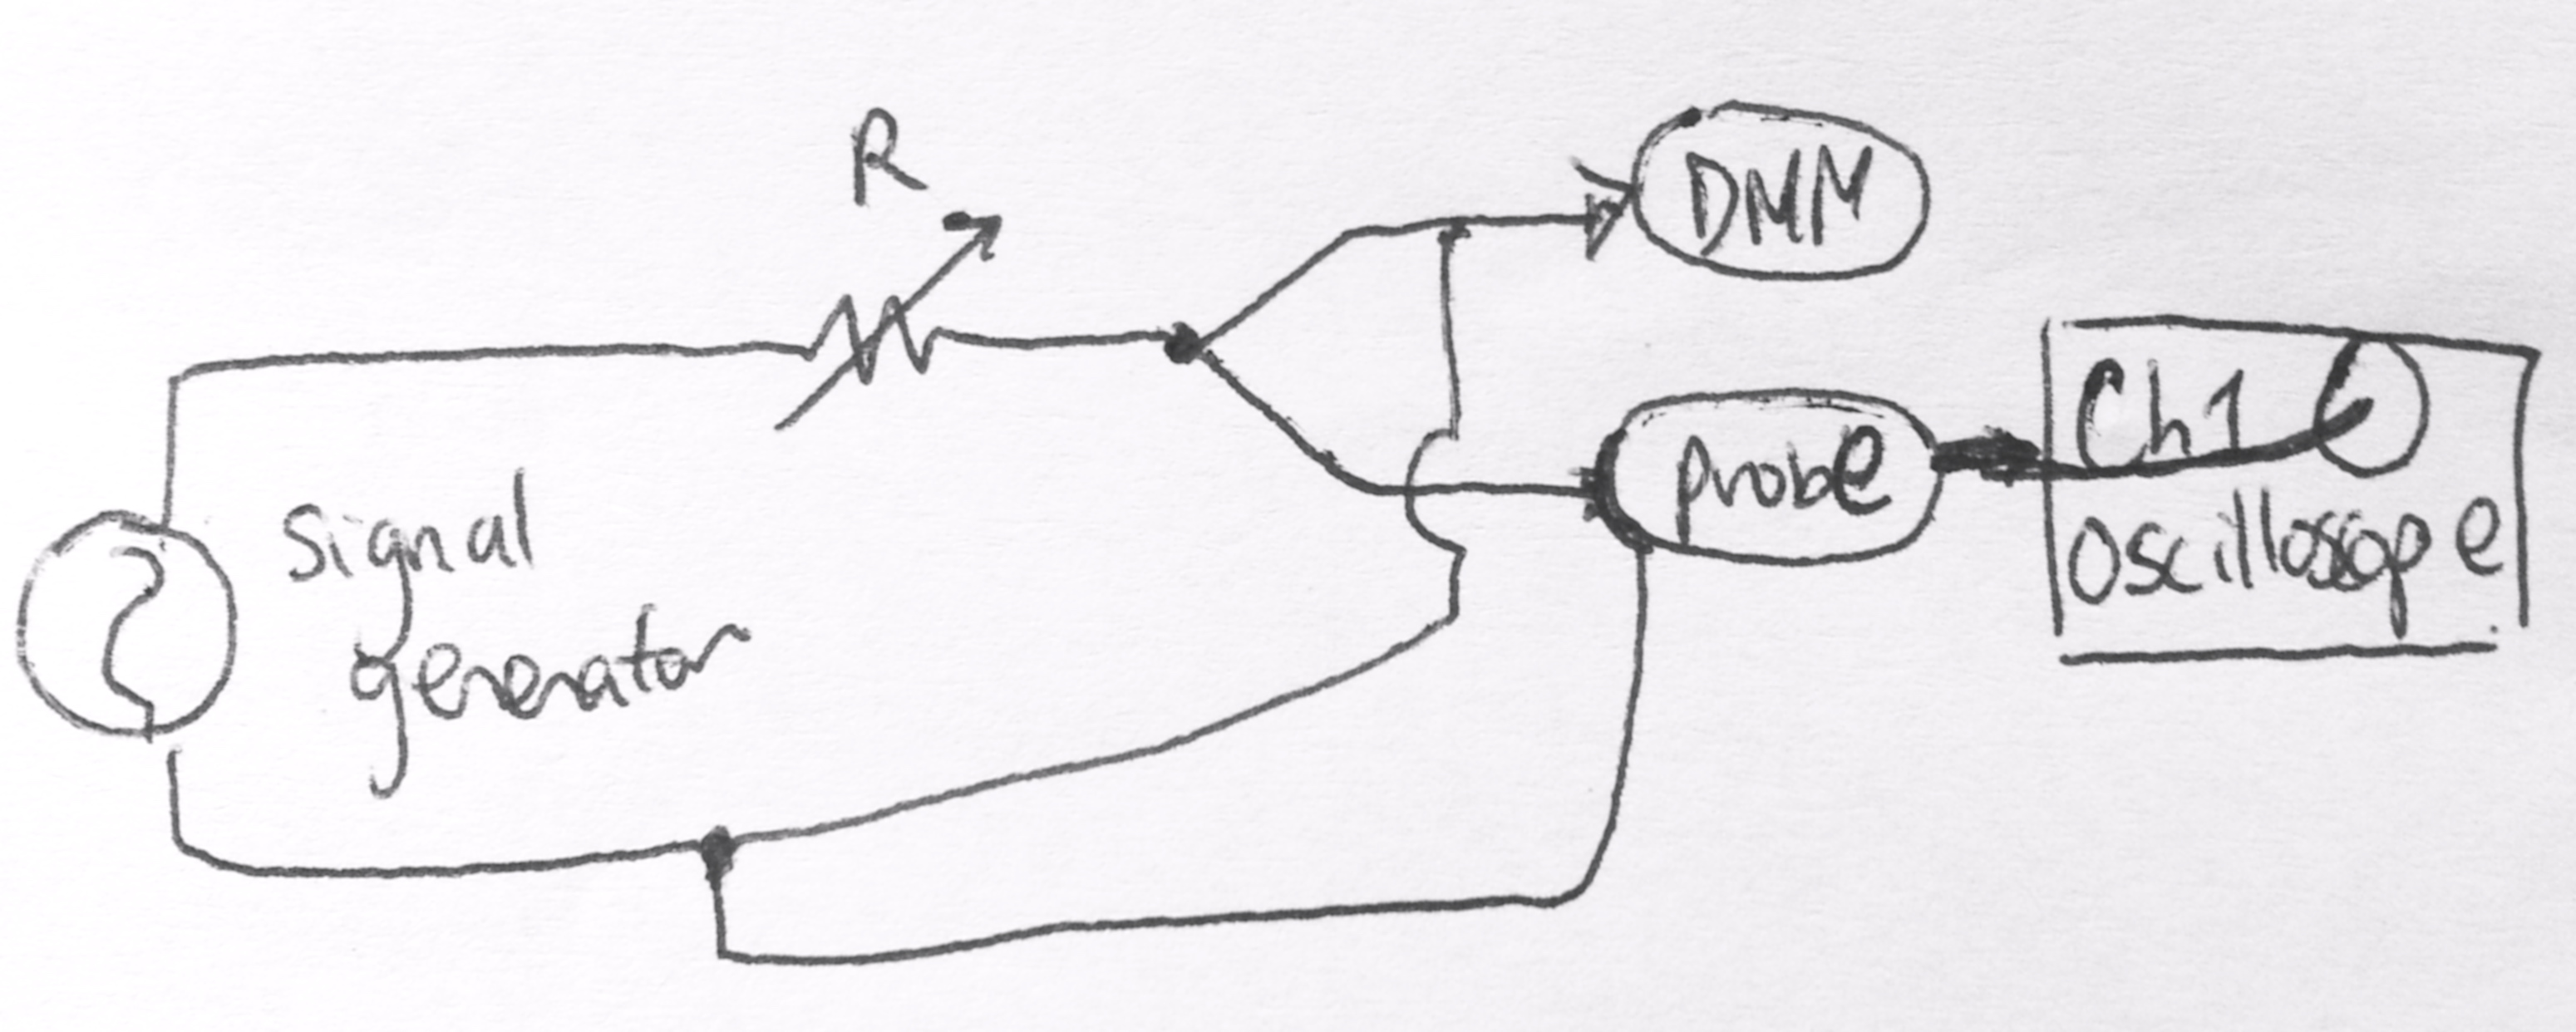 R
DMM
Signal
generator
probe
Ch1
oscilloscope